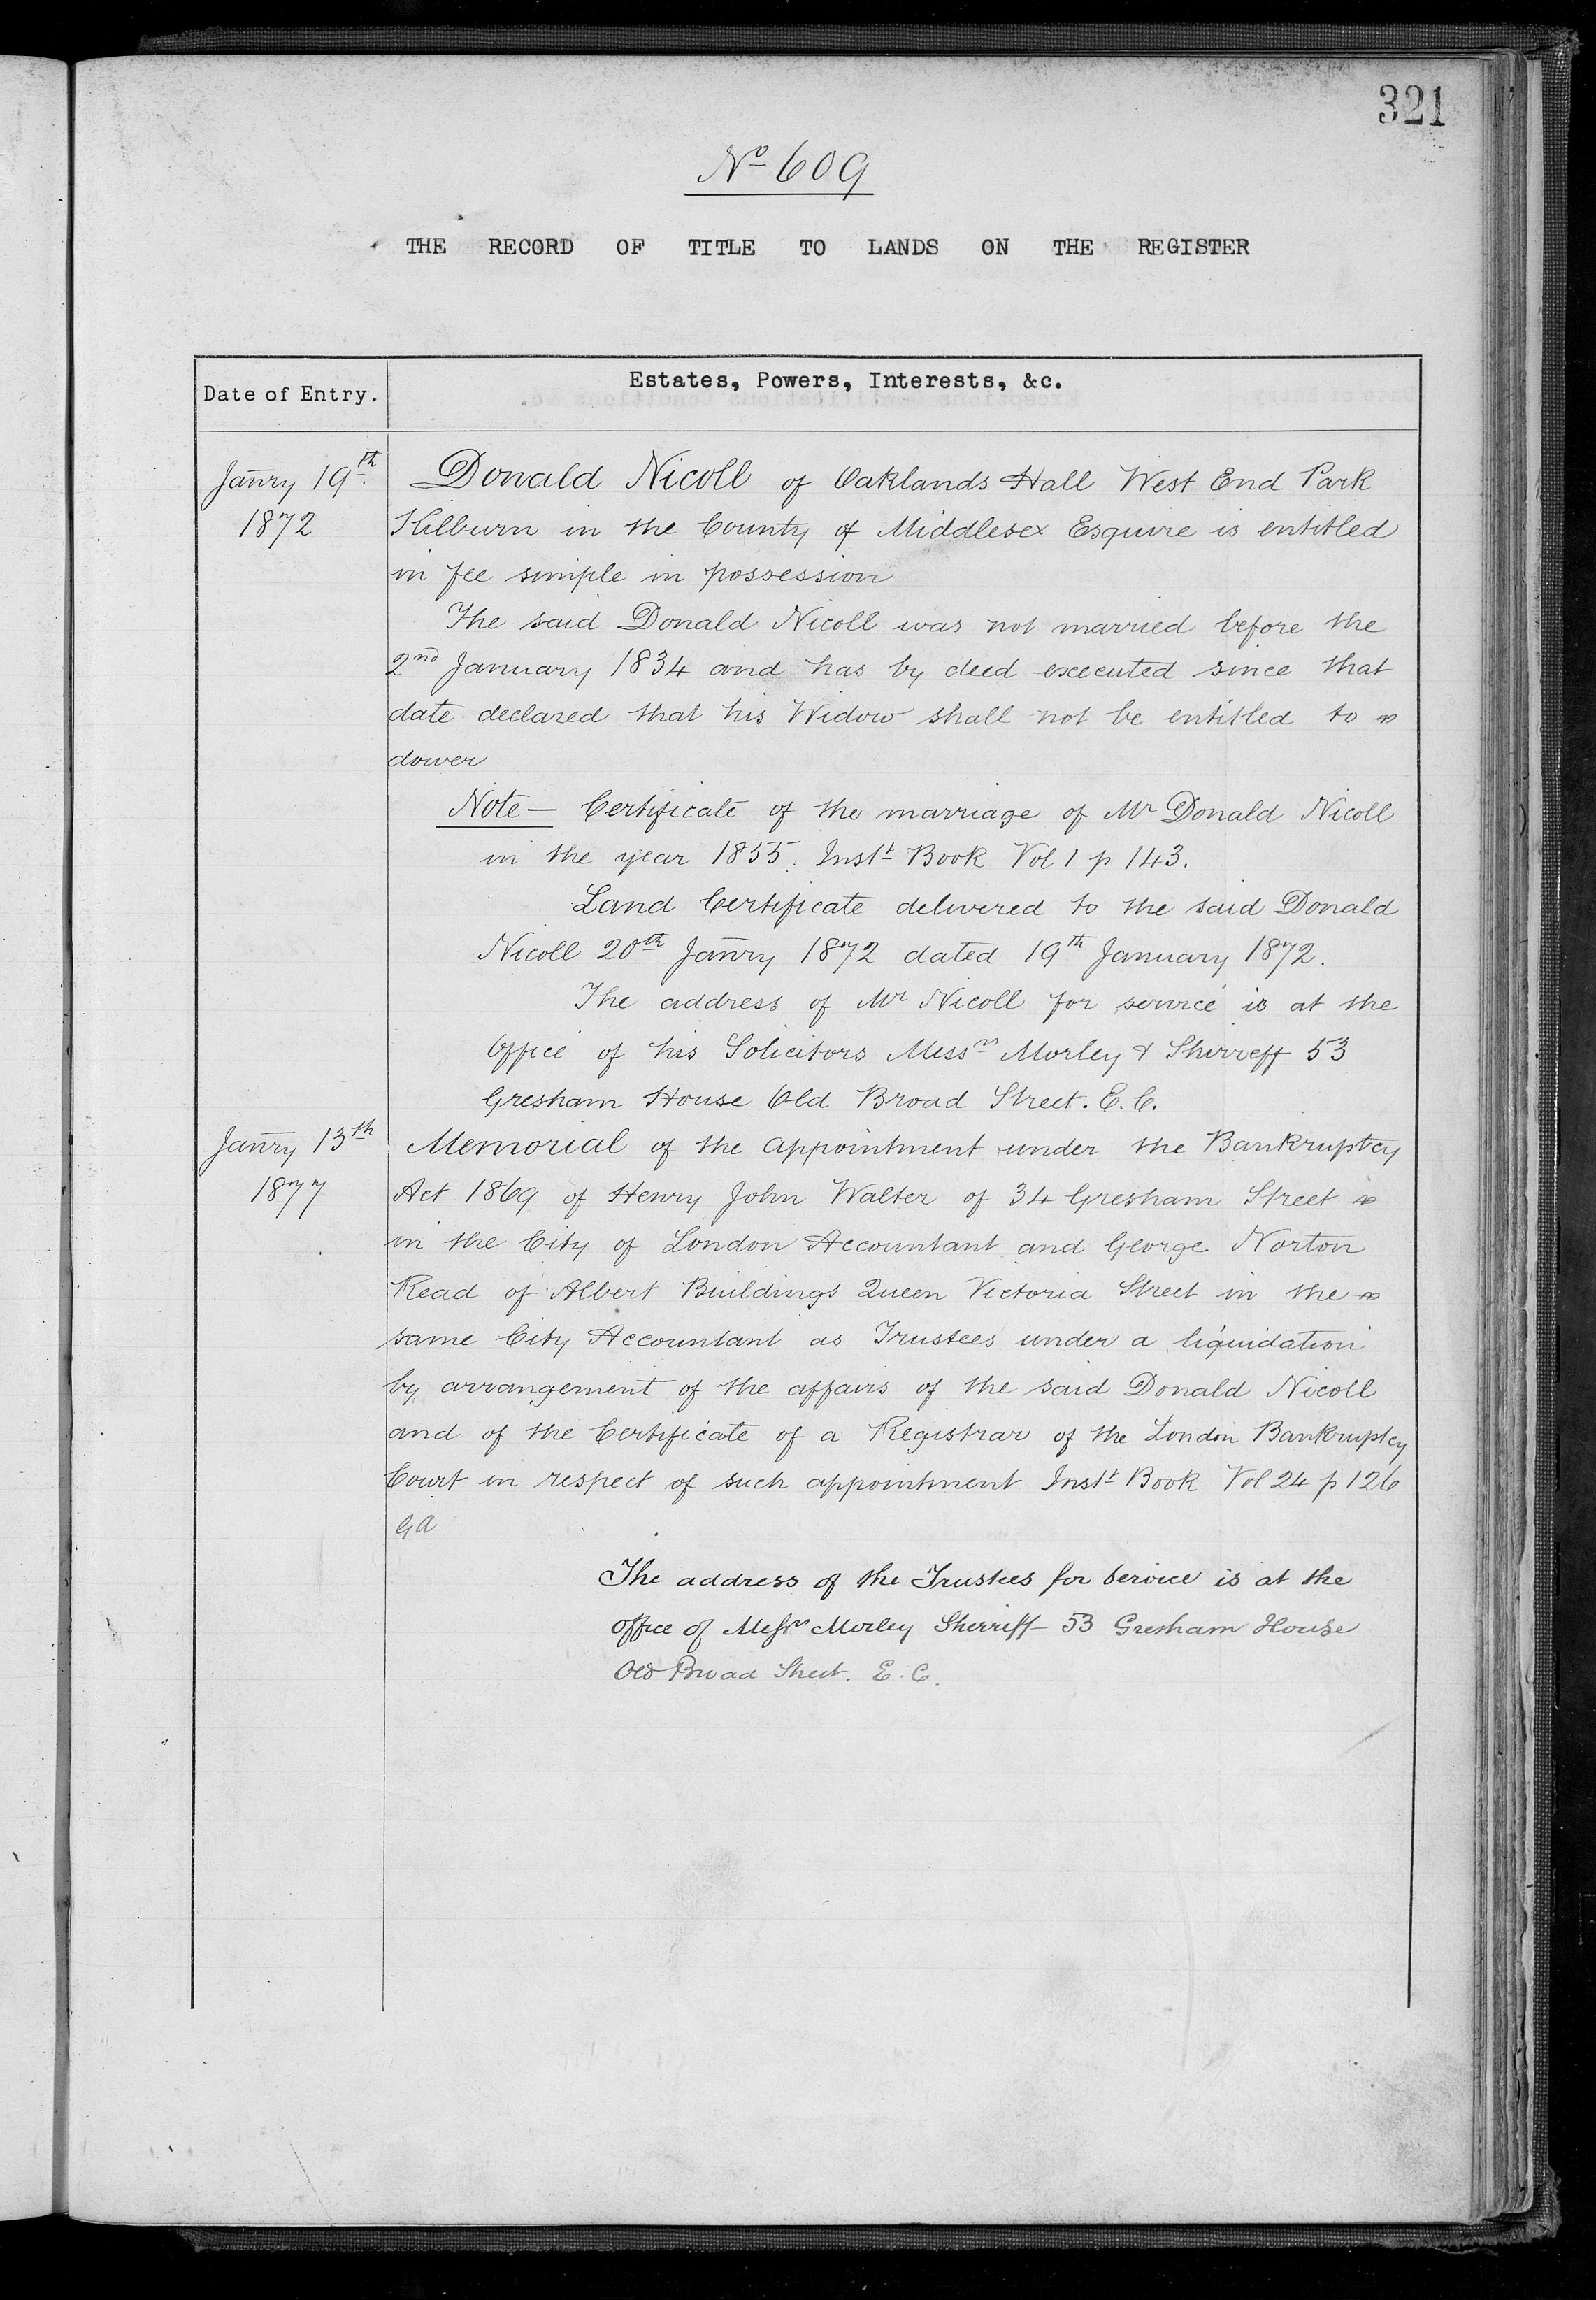 321
No 609
THE RECORD OF TITLE TO LANDS ON THE REGISTER
Date of Entry.
Estates, Powers, Interests, &c.
Janry 19th
1872
Donald Nicoll of Oaklands Hall West End Park
Kilburn in the County of Middlesex Esquire is entitled
in fee simple in possession
The said Donald Nicoll was not married before the
2nd January 1834 and has by deed executed since that
date declared that his Widow shall not be entitled to
dower
Note— Certificate of the marriage of Mr Donald Nicoll
in the year 1855. Instt Book Vol 1 p 143.
Land Certificate delivered to the said Donald
Nicoll 20th Janry 1872 dated 19th January 1872.
The address of Mr Nicoll for service is at the
Office of his Solicitors Messrs Morley & Shirreff 53
Gresham House Old Broad Street. E.C.
Janry 13th
1877
Memorial of the appointment under the Bankruptcy
Act 1869 of Henry John Walter of 34 Gresham Street
in the City of London Accountant and George Norton
Read of Albert Buildings Queen Victoria Street in the
same City Accountant as Trustees under a liquidation
by arrangement of the affairs of the said Donald Nicoll
and of the Certificate of a Registrar of the London Bankruptcy
Court in respect of such appointment Instt Book Vol 24 p 126
GA
The address of the Trustees for Service is at the
Office of Messrs Morley Sherriff 53 Gresham House
Old Broad Street. E.C.